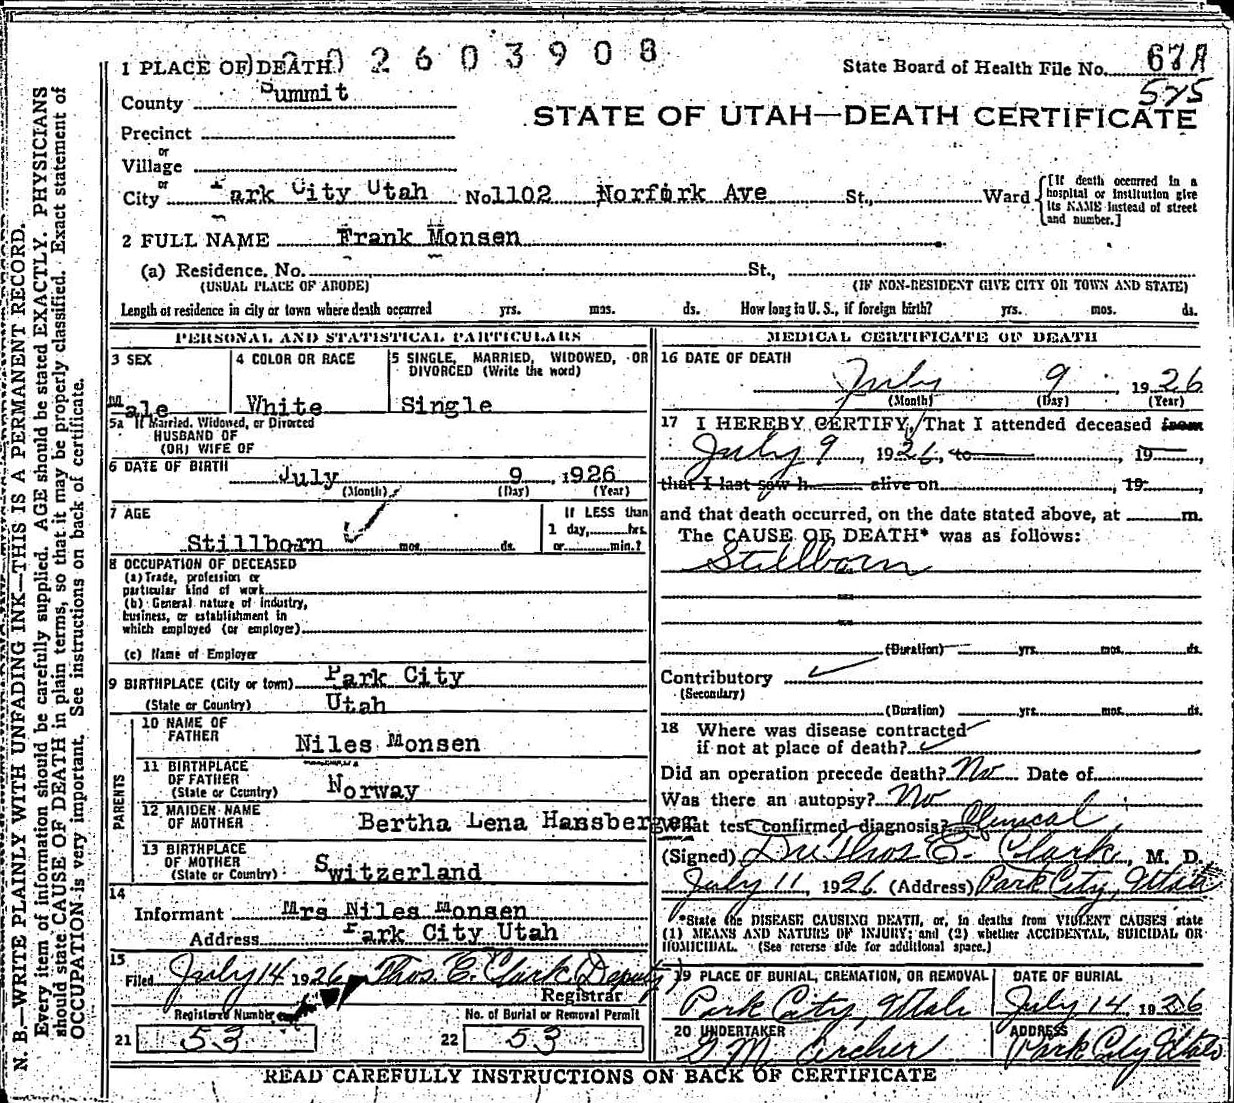 2 6 0 3 9 0 8
1 PLACE OF DEATH
State Board of Health File No. 67A
575
County Summit
STATE OF UTAH—DEATH CERTIFICATE
Precinct
or
Village
or
City Park City Utah No 1102 Norfork Ave St., Ward
[If death occurred in a hospital or institution give its NAME instead of street and number.]
2 FULL NAME Frank Monsen
(a) Residence. No. St.,
(USUAL PLACE OF ABODE) (IF NON-RESIDENT GIVE CITY OR TOWN AND STATE)
Length of residence in city or town where death occurred yrs. mos. ds. How long in U. S., if foreign birth? yrs. mos. ds.
PERSONAL AND STATISTICAL PARTICULARS
3 SEX
Male
4 COLOR OR RACE
White
5 SINGLE, MARRIED, WIDOWED, OR
DIVORCED (Write the word)
Single
5a If Married, Widowed, or Divorced
HUSBAND OF
(OR) WIFE OF
6 DATE OF BIRTH July 9, 1926
(Month) (Day) (Year)
7 AGE
Stillborn mos. ds.
If LESS than
1 day, hrs.
or min.?
8 OCCUPATION OF DECEASED
(a) Trade, profession or
particular kind of work
(b) General nature of industry,
business, or establishment in
which employed (or employer)
(c) Name of Employer
9 BIRTHPLACE (City or town) Park City
(State or Country) Utah
PARENTS
10 NAME OF
FATHER Niles Monsen
11 BIRTHPLACE
OF FATHER
(State or Country) Norway
12 MAIDEN NAME
OF MOTHER Bertha Lena Hansberger
13 BIRTHPLACE
OF MOTHER
(State or Country) Switzerland
14
Informant Mrs Niles Monsen
Address Park City Utah
15
Filed July 14 1926 Thos. E. Clark. Deputy
Registrar
Registered Number
21 53
No. of Burial or Removal Permit
22 53
MEDICAL CERTIFICATE OF DEATH
16 DATE OF DEATH
July 9, 1926
(Month) (Day) (Year)
17 I HEREBY CERTIFY, That I attended deceased from
July 9, 1926, to , 19 ,
that I last saw h alive on , 19 ,
and that death occurred, on the date stated above, at m.
The CAUSE OF DEATH* was as follows:
Stillborn
(Duration) yrs. mos. ds.
Contributory
(Secondary)
(Duration) yrs. mos. ds.
18 Where was disease contracted
if not at place of death?
Did an operation precede death? No Date of
Was there an autopsy? No
What test confirmed diagnosis? Clinical
(Signed) Dr Thos E. Clark, M. D.
July 11, 1926. (Address) Park City, Utah
*State the DISEASE CAUSING DEATH, or, in deaths from VIOLENT CAUSES state
(1) MEANS AND NATURE OF INJURY; and (2) whether ACCIDENTAL, SUICIDAL OR
HOMICIDAL. (See reverse side for additional space.)
19 PLACE OF BURIAL, CREMATION, OR REMOVAL
Park City, Utah
DATE OF BURIAL
July 14 1926
20 UNDERTAKER
G M Archer
ADDRESS
Park City Utah
READ CAREFULLY INSTRUCTIONS ON BACK OF CERTIFICATE
N. B.—WRITE PLAINLY WITH UNFADING INK—THIS IS A PERMANENT RECORD.
Every item of information should be carefully supplied. AGE should be stated EXACTLY. PHYSICIANS
should state CAUSE OF DEATH in plain terms, so that it may be properly classified. Exact statement of
OCCUPATION is very important. See instructions on back of certificate.